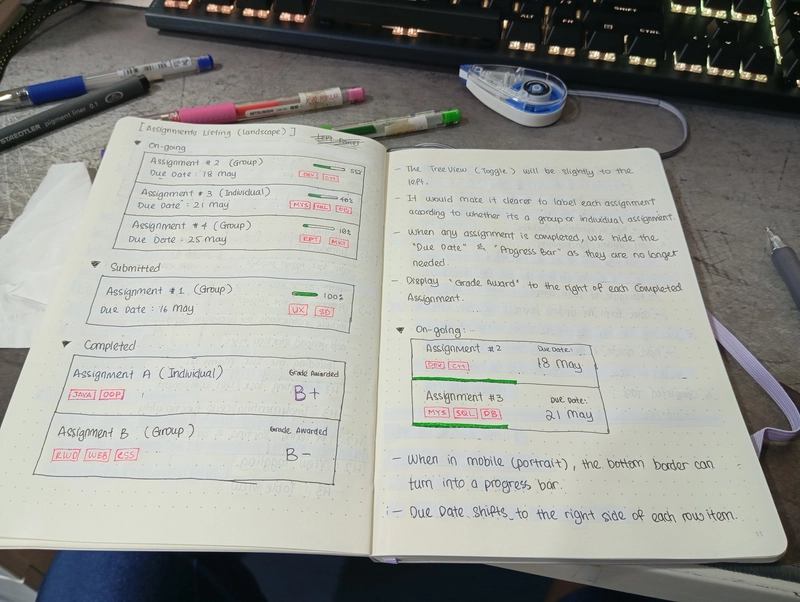 [ Assignments Listing (landscape) ]
On-going
Assignment #2 (Group)
Due Date : 18 May
DEV C++
Assignment #3 (Individual)
40%
Due Date : 21 May
MYS SQL DB
Assignment #4 (Group)
10%
Due Date : 25 May
Submitted
Assignment #1 (Group)
100%
Due Date : 16 May
UX
Completed
Assignment A (Individual)
Grade Awarded
JAVA OOP
B+
Assignment B (Group)
Grade Awarded
RWD WEB RSS
B-
- The TreeView (Toggle) will be slightly to the
left.
- It would make it clearer to label each assignment
according to whether its a group or individual assignment.
- When any assignment is completed, we hide the
"Due Date" & "Progress Bar" as they are no longer
needed.
- Display "Grade Award" to the right of each Completed
Assignment.
On-going:
Assignment #2
Due Date:
DEV C++
18 May
Assignment #3
Due Date:
MYS SQL DB
21 May
- When in mobile (portrait), the bottom border can
turn into a progress bar.
- Due Date shifts to the right side of each row item.
STAEDTLER pigment liner 0.1
ALT
FN
CTRL
SHIFT